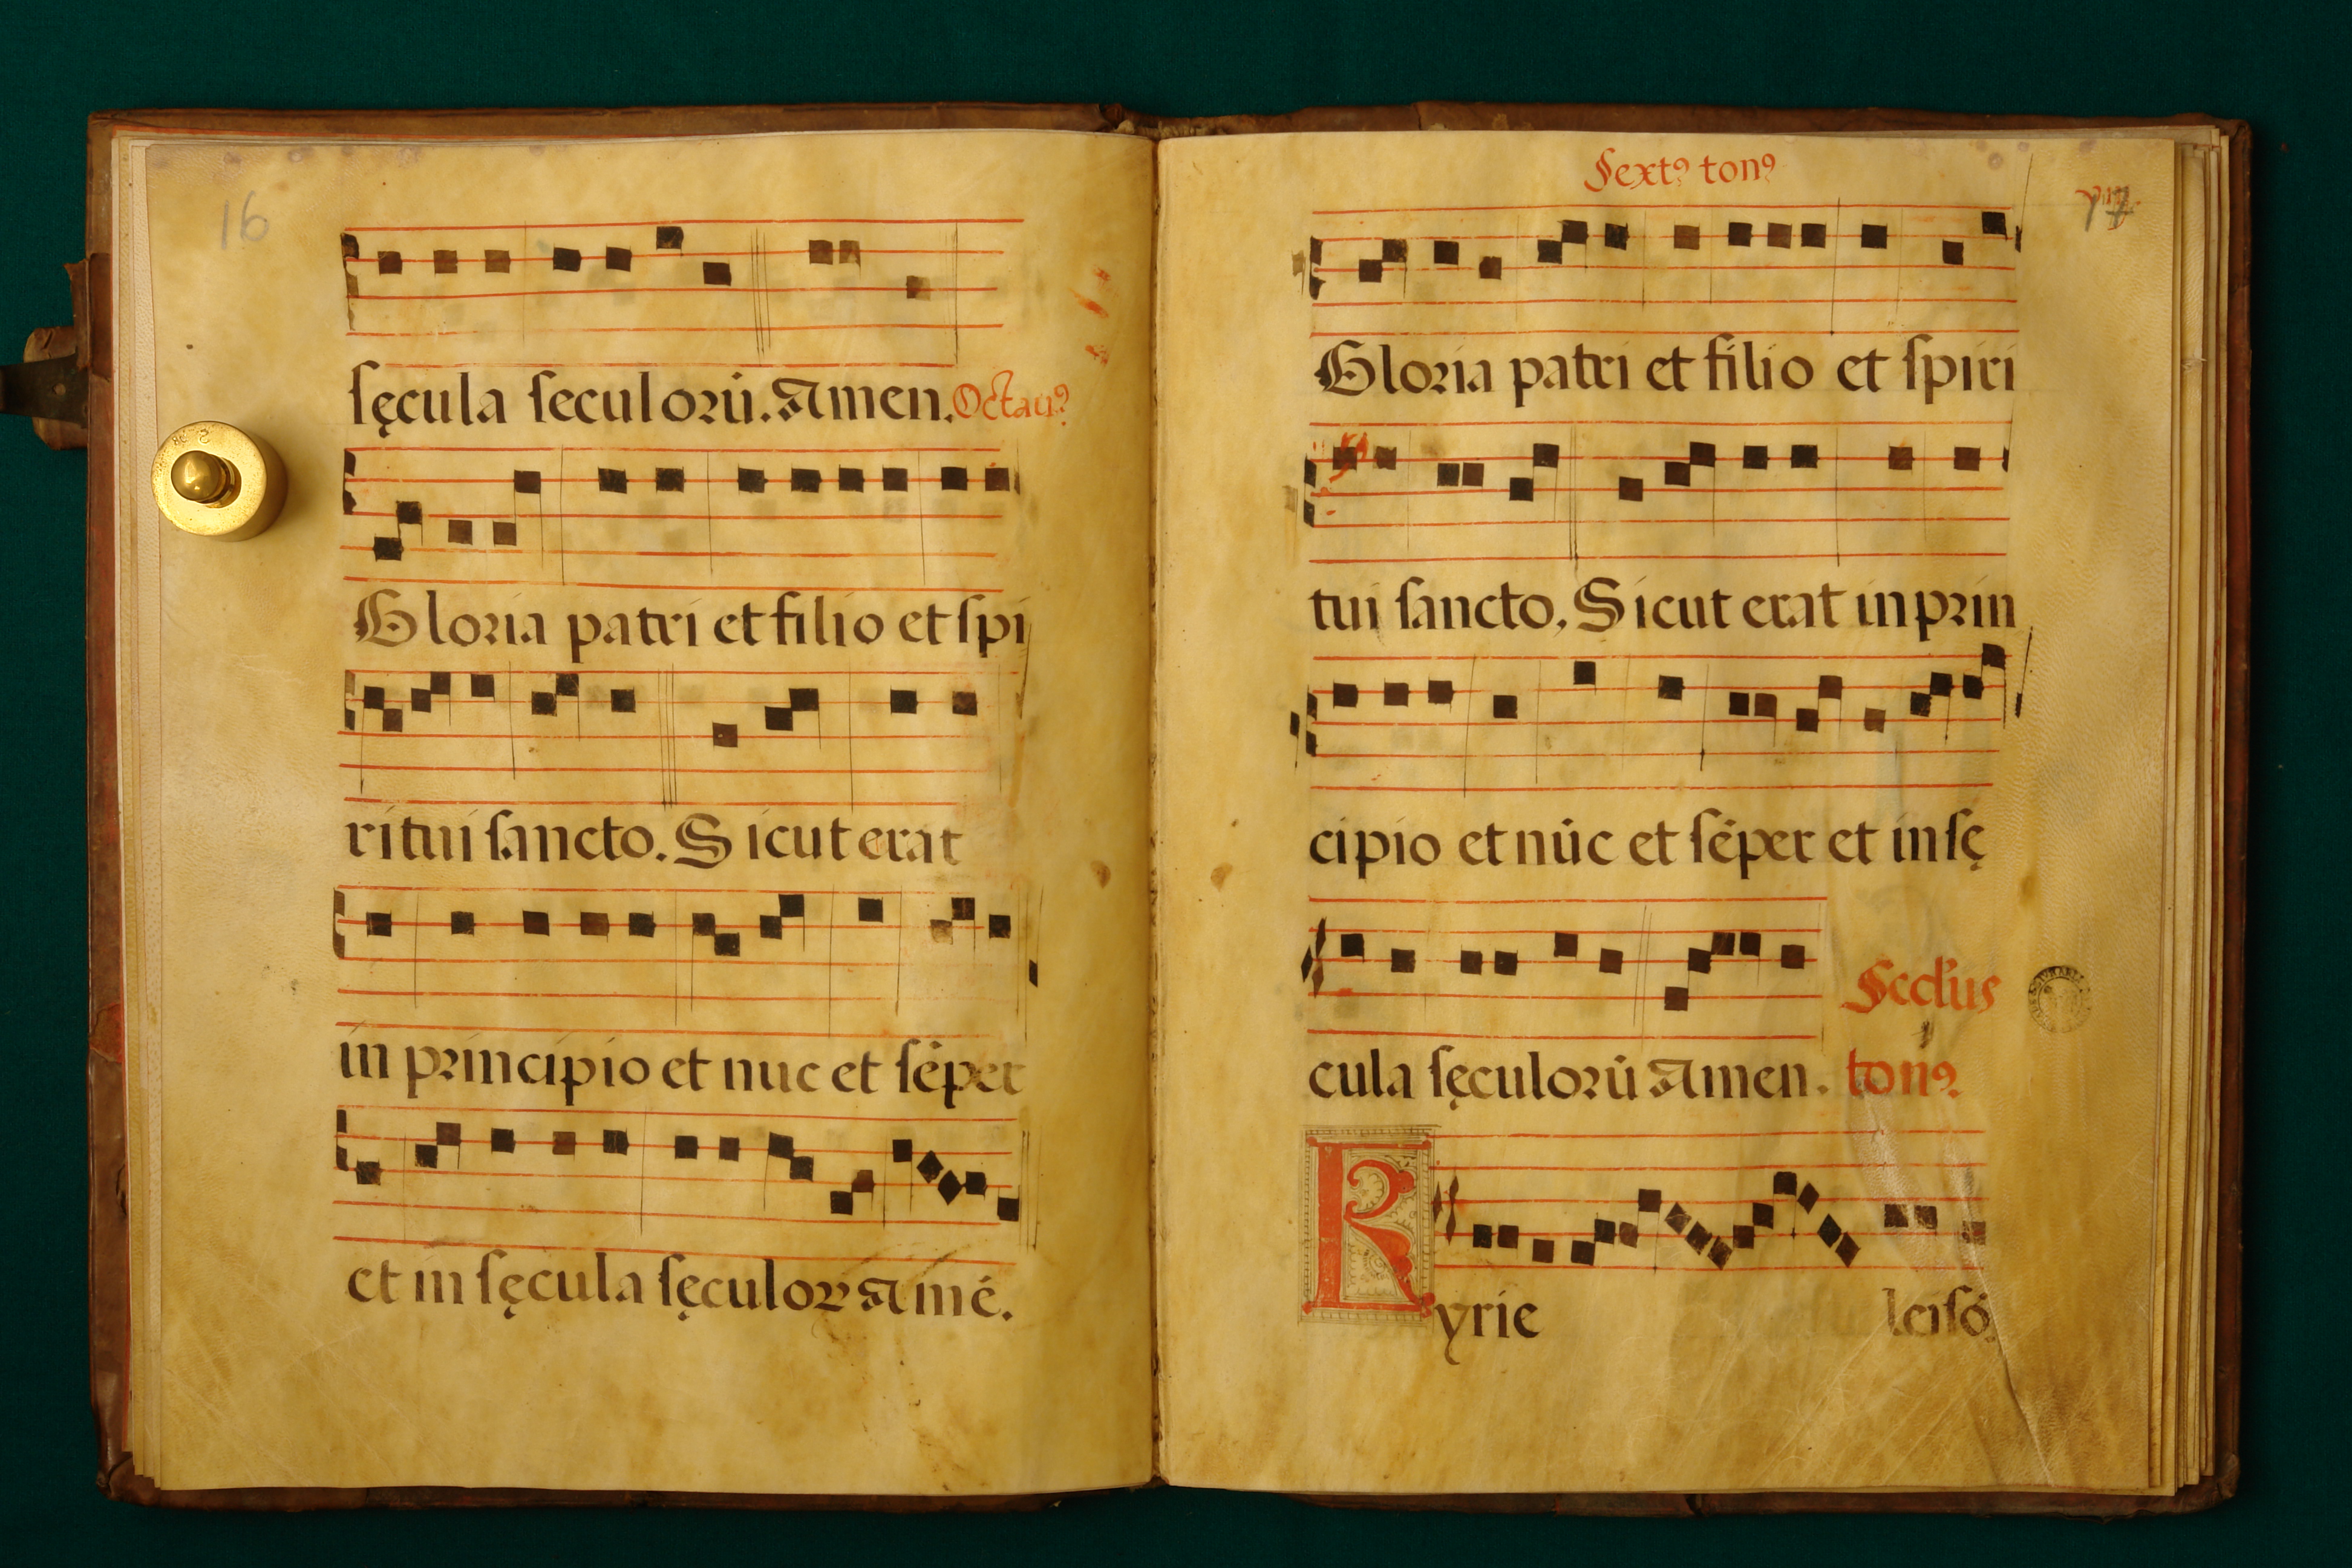 16
sęcula seculorū. Amen. Octauꝰ
Gloria patri et filio et spi
ritui sancto. Sicut erat
in principio et nuc et sēper
et in sęcula sęculoꝝ Amē.
Sextꝰ tonꝰ
17
Gloria patri et filio et spiri
tui sancto, Sicut erat in prin
cipio et nūc et sēper et in sę
cula sęculorū Amen. tonꝰ
Kyrie leisō